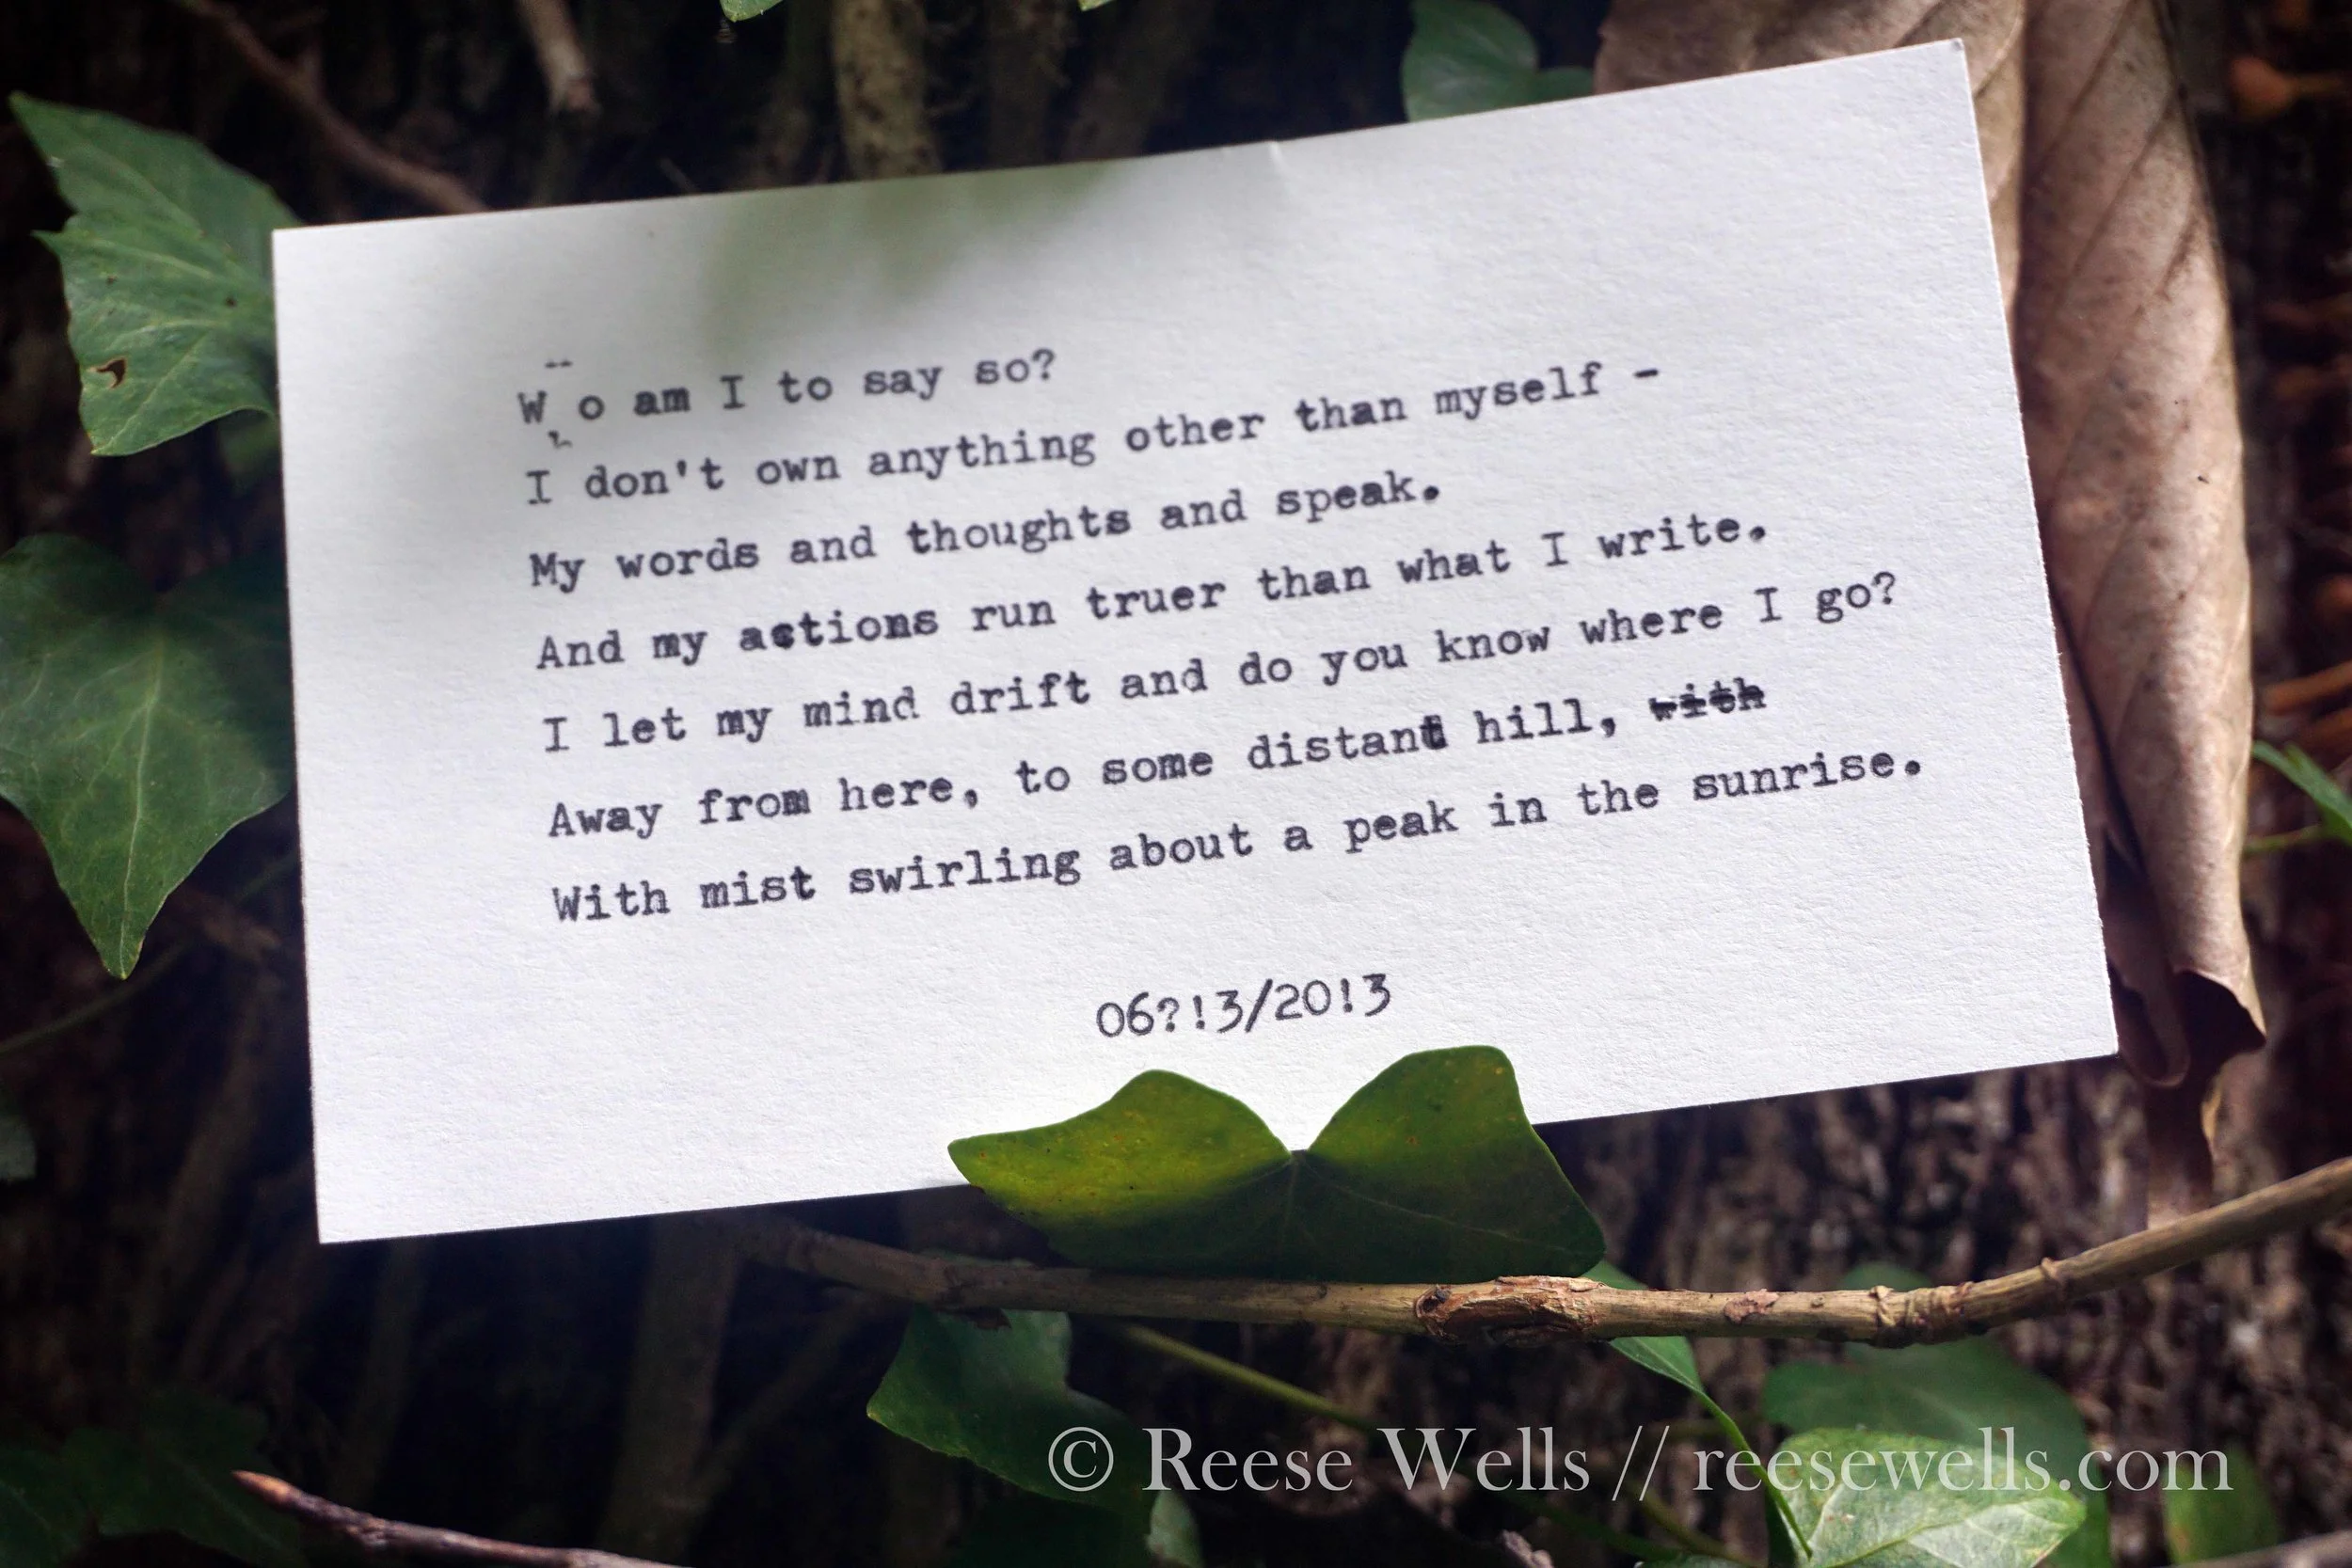 Who am I to say so?
I don't own anything other than myself -
My words and thoughts and speak.
And my actions run truer than what I write.
I let my mind drift and do you know where I go?
Away from here, to some distant hill, with
With mist swirling about a peak in the sunrise.
06?!3/20!3
© Reese Wells // reesewells.com